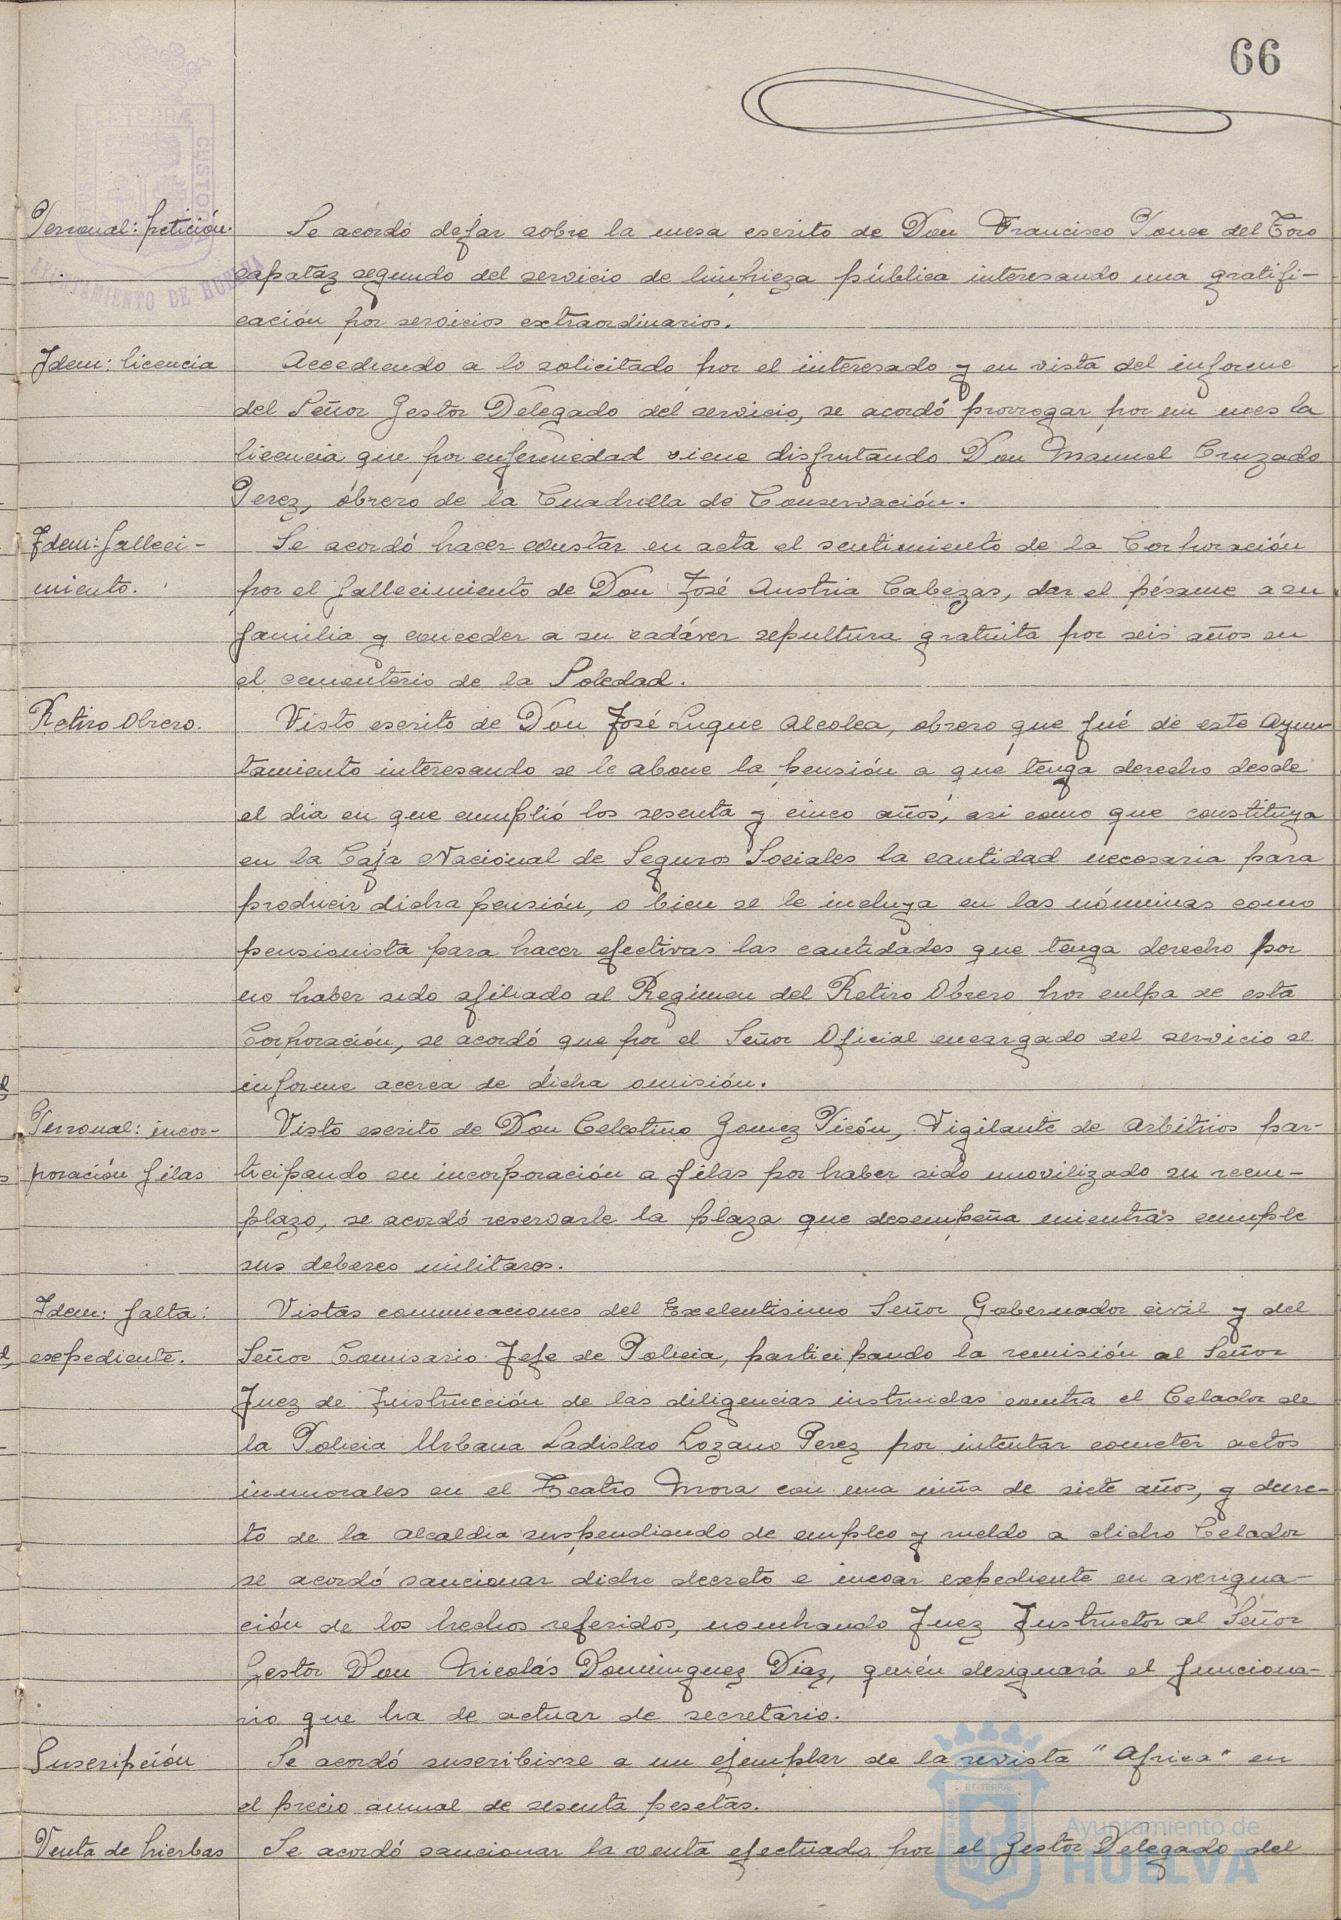 66
Personal: petición. Se acordó dejar sobre la mesa escrito de Don Francisco Ponce del Toro
capataz segundo del servicio de limpieza pública interesando una gratifi-
cación por servicios extraordinarios.
Idem: licencia Accediendo a lo solicitado por el interesado y en vista del informe
del Señor Gestor Delegado del servicio, se acordó prorrogar por un mes la
licencia que por enfermedad viene disfrutando Don Manuel Cruzado
Perez, obrero de la Cuadrilla de Conservación.
Idem: falleci- Se acordó hacer constar en acta el sentimiento de la Corporación
miento. por el fallecimiento de Don José Austria Cabezas, dar el pésame a su
familia y conceder a su cadáver sepultura gratuita por seis años en
el cementerio de la Soledad.
Retiro Obrero. Visto escrito de Don José Luque Alcolea, obrero que fué de este Ayun-
tamiento interesando se le abone la pensión a que tenga derecho desde
el dia en que cumplió los sesenta y cinco años, asi como que constituya
en la Caja Nacional de Seguros Sociales la cantidad necesaria para
producir dicha pensión, o bien se le incluya en las nóminas como
pensionista para hacer efectivas las cantidades que tenga derecho por
no haber sido afiliado al Regimen del Retiro Obrero por culpa de esta
Corporación, se acordó que por el Señor Oficial encargado del servicio se
informe acerca de dicha omisión.
Personal: incor- Visto escrito de Don Celestino Gomez Picón, Vigilante de Arbitrios par-
poración filas ticipando su incorporación a filas por haber sido movilizado su reem-
plazo, se acordó reservarle la plaza que desempeña mientras cumple
sus deberes militares.
Idem: falta: Vistas comunicaciones del Exelentisimo Señor Gobernador civil y del
expediente. Señor Comisario Jefe de Policia, participando la remisión al Señor
Juez de Instrucción de las diligencias instruidas contra el Celador de
la Policia Urbana Ladislao Lozano Perez por intentar cometer actos
inmorales en el Teatro Mora con una niña de siete años, y decre-
to de la Alcaldia suspendiendo de empleo y sueldo a dicho Celador
se acordó sancionar dicho decreto e incoar expediente en averigua-
ción de los hechos referidos, nombrando Juez Instructor al Señor
Gestor Don Nicolás Dominguez Diaz, quién designará el funciona-
rio que ha de actuar de secretario.
Suscripción Se acordó suscribirse a un ejemplar de la revista "Africa" en
el precio anual de sesenta pesetas.
Venta de hierbas Se acordó sancionar la venta efectuada por el Gestor Delegado del
Ayuntamiento de
HUELVA